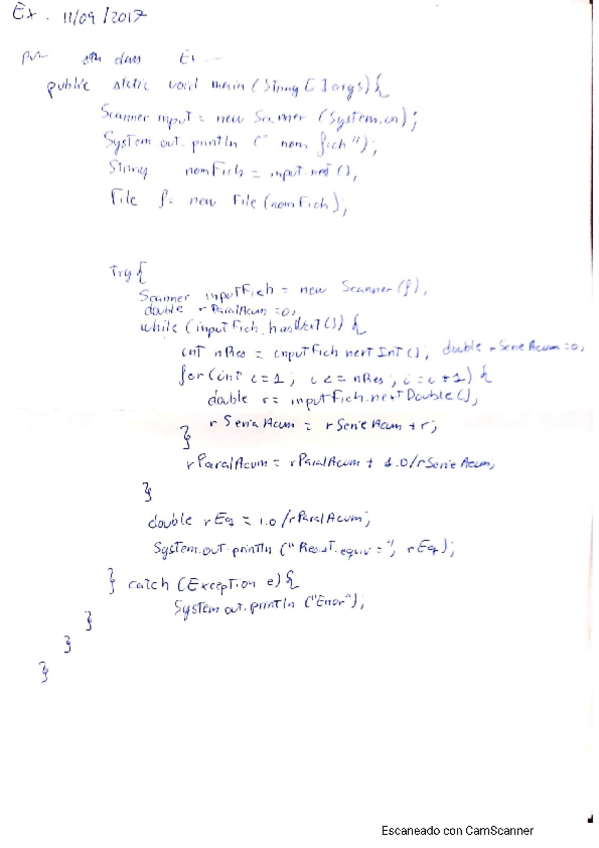 Ex. 11/09/2017
class Ex ...
public static void main (String [] args) {
Scanner input = new Scanner (System.in);
System out.println (" nom fich ");
String nomFich = input.next (),
File f = new File (nomFich);
Try {
Scanner inputFich = new Scanner (f),
double rParalAcum = 0,
while (inputFich.hasNext ()) {
int nRes = inputFich nextInt (), double rSerieAcum = 0,
for (int i = 1 ; i <= nRes ; i = i + 1) {
double r = inputFich.nextDouble (),
rSerieAcum = rSerieAcum + r;
}
rParalAcum = rParalAcum + 1.0/rSerieAcum,
}
double rEq = 1.0/rParalAcum;
System.out.println ("Resist.equiv = ", rEq);
} catch (Exception e) {
System out.println ("Error");
}
}
}
Escaneado con CamScanner